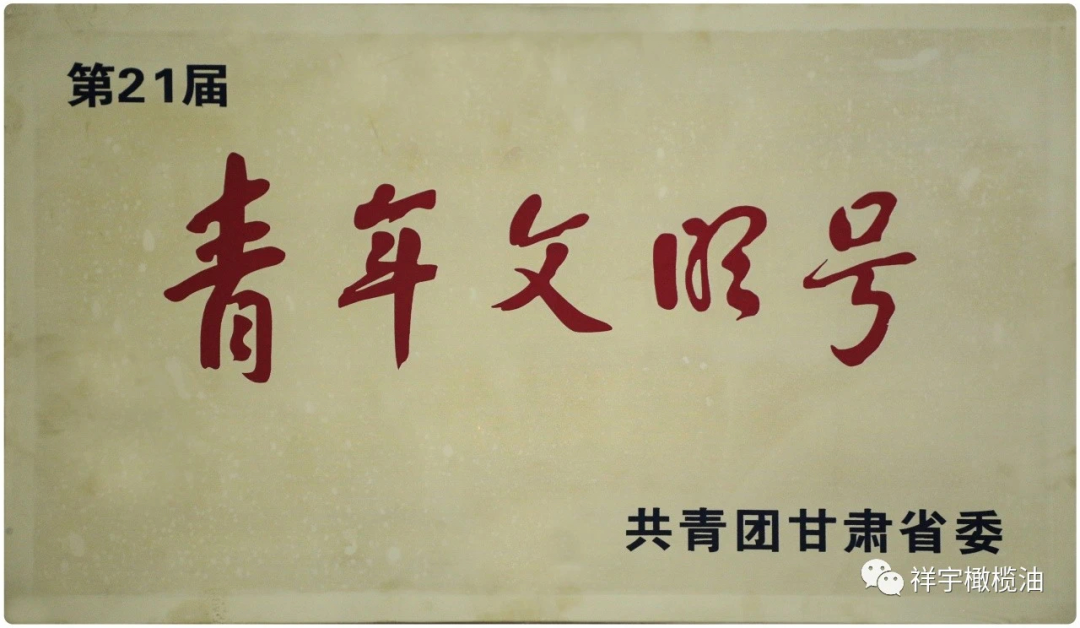 第21届
青年文明号
共青团甘肃省委
祥宇橄榄油